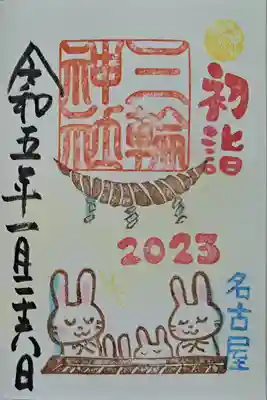 初詣
三輪
神社
2023
名古屋
令和五年一月二十八日